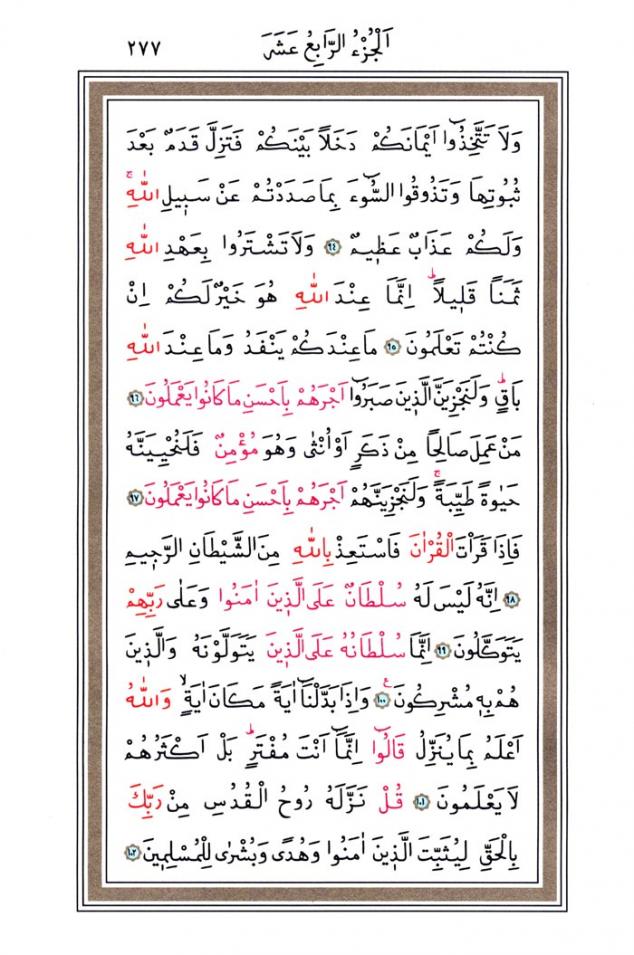 اَلْجُزْءُ الرَّابِعُ عَشَرَ
٢٧٧
وَلَا تَتَّخِذُٓوا اَيْمَانَكُمْ دَخَلًا بَيْنَكُمْ فَتَزِلَّ قَدَمٌ بَعْدَ
ثُبُوتِهَا وَتَذُوقُوا السُّٓوءَ بِمَا صَدَدْتُمْ عَنْ سَبٖيلِ اللّٰهِۚ
وَلَكُمْ عَذَابٌ عَظٖيمٌ ﴿٩٤﴾ وَلَا تَشْتَرُوا بِعَهْدِ اللّٰهِ
ثَمَنًا قَلٖيلًاۜ اِنَّمَا عِنْدَ اللّٰهِ هُوَ خَيْرٌ لَكُمْ اِنْ
كُنْتُمْ تَعْلَمُونَ ﴿٩٥﴾ مَا عِنْدَكُمْ يَنْفَدُ وَمَا عِنْدَ اللّٰهِ
بَاقٍۜ وَلَنَجْزِيَنَّ الَّذٖينَ صَبَرُٓوا اَجْرَهُمْ بِاَحْسَنِ مَا كَانُوا يَعْمَلُونَ ﴿٩٦﴾
مَنْ عَمِلَ صَالِحًا مِنْ ذَكَرٍ اَوْ اُنْثٰى وَهُوَ مُؤْمِنٌ فَلَنُحْيِيَنَّهُ
حَيٰوةً طَيِّبَةًۚ وَلَنَجْزِيَنَّهُمْ اَجْرَهُمْ بِاَحْسَنِ مَا كَانُوا يَعْمَلُونَ ﴿٩٧﴾
فَاِذَا قَرَاْتَ الْقُرْاٰنَ فَاسْتَعِذْ بِاللّٰهِ مِنَ الشَّيْطَانِ الرَّجٖيمِ
﴿٩٨﴾ اِنَّهُ لَيْسَ لَهُ سُلْطَانٌ عَلَى الَّذٖينَ اٰمَنُوا وَعَلٰى رَبِّهِمْ
يَتَوَكَّلُونَ ﴿٩٩﴾ اِنَّمَا سُلْطَانُهُ عَلَى الَّذٖينَ يَتَوَلَّوْنَهُ وَالَّذٖينَ
هُمْ بِهٖ مُشْرِكُونَ ﴿١٠٠﴾ وَاِذَا بَدَّلْنَٓا اٰيَةً مَكَانَ اٰيَةٍۙ وَاللّٰهُ
اَعْلَمُ بِمَا يُنَزِّلُ قَالُٓوا اِنَّمَٓا اَنْتَ مُفْتَرٍۜ بَلْ اَكْثَرُهُمْ
لَا يَعْلَمُونَ ﴿١٠١﴾ قُلْ نَزَّلَهُ رُوحُ الْقُدُسِ مِنْ رَبِّكَ
بِالْحَقِّ لِيُثَبِّتَ الَّذٖينَ اٰمَنُوا وَهُدًى وَبُشْرٰى لِلْمُسْلِمٖينَ ﴿١٠٢﴾